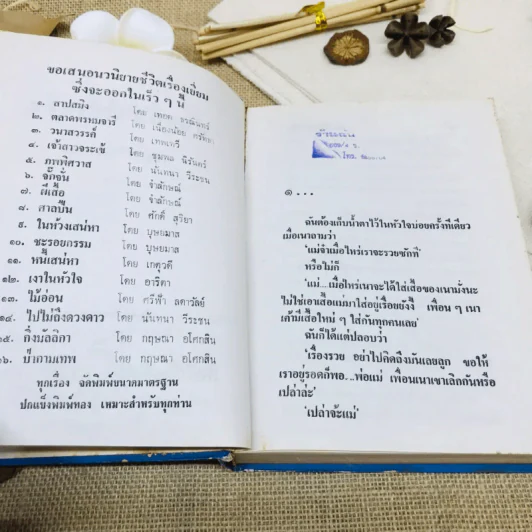 ขอเสนอนวนิยายชีวิตเรื่องเยี่ยม
ซึ่งจะออกในเร็ว ๆ นี้
๑. ลาปสมิง โดย เทอด
๒. ตลาดพรหมจารี โดย เนื่องน้อย
๓. วนาสวรรค์ โดย เทพเทวี
๔. เจ้าสาวจระเข้ โดย ชุมพล นิรันดร์
๕. ภาพพิศวาส โดย นันทนา วีระชน
๖. จั๊กจั่น โดย จำลักษณ์
๗. ผีเสื้อ โดย จำลักษณ์
๘. ศาลปืน โดย ศักดิ์ สุริยา
๙. ในห้วงเสน่หา โดย บุษยมาส
๑๐. ชะรอยกรรม โดย บุษยมาส
๑๑. หนี้เสน่หา โดย เกตุวดี
๑๒. เงาในหัวใจ โดย อาริตา
๑๓. ไม้อ่อน โดย ศรีฟ้า ลดาวัลย์
๑๔. ไปไม่ถึงดวงดาว โดย นันทนา วีระชน
๑๕. กิ่งมัลลิกา โดย กฤษณา อโศกสิน
๑๖. ป่ากามเทพ โดย กฤษณา อโศกสิน
ทุกเรื่อง จัดพิมพ์ขนาดมาตรฐาน
ปกแข็งพิมพ์ทอง เหมาะสำหรับทุกท่าน
๑ . . .
ฉันต้องเก็บน้ำตาไว้ในหัวใจบ่อยครั้งทีเดียว
เมื่อเนาถามว่า
'แม่จ๋าเมื่อไหร่เราจะรวยซักที'
หรือไม่ก็
'แม่...เมื่อไหร่เนาจะได้ใส่เสื้อของเนามั่งนะ
ไม่ใช่เอาเสื้อแม่มาใส่อยู่เรื่อยยังงี้ เพื่อน ๆ เนา
เค้ามีเสื้อใหม่ ๆ ใส่กันทุกคนเลย'
ฉันก็ได้แต่ปลอบว่า
'เรื่องรวย อย่าไปคิดถึงมันเลยลูก ขอให้
เราอยู่รอดก็พอ...พ่อแม่ เพื่อนเนาเขาเลิกกันหรือ
เปล่าล่ะ'
'เปล่าจ้ะแม่'